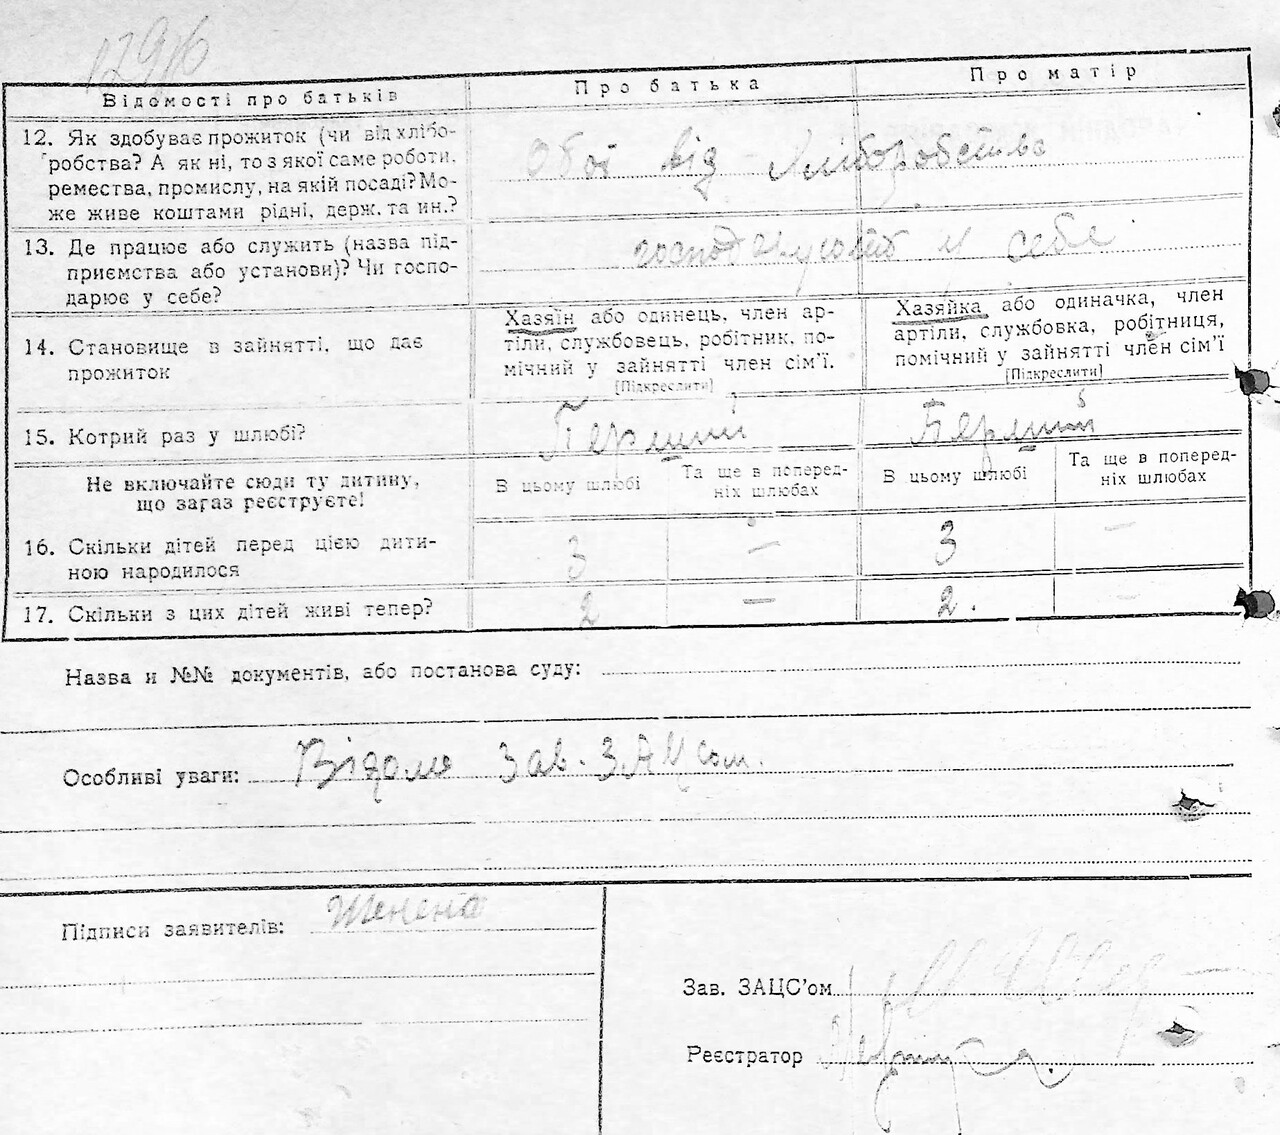 12916
Відомості про батьків
Про батька
Про матір
12. Як здобуває прожиток (чи від хлібо-
робства? А як ні, то з якої саме роботи,
ремества, промислу, на якій посаді? Мо-
же живе коштами рідні, держ. та ин.?
Обоє від хліборобства
13. Де працює або служить (назва під-
приємства або установи)? Чи госпо-
дарює у себе?
у себе
14. Становище в зайнятті, що дає
прожиток
Хазяїн або одинець, член ар-
тіли, службовець, робітник, по-
мічний у зайнятті член сім’ї.
[Підкреслити]
Хазяйка або одиначка, член
артіли, службовка, робітниця,
помічний у зайнятті член сім’ї
[Підкреслити]
15. Котрий раз у шлюбі?
Перший
Перший
Не включайте сюди ту дитину,
що загаз реєструєте!
В цьому шлюбі
Та ще в поперед-
ніх шлюбах
В цьому шлюбі
Та ще в поперед-
ніх шлюбах
16. Скільки дітей перед цією дити-
ною народилося
3 — 3 —
17. Скільки з цих дітей живі тепер?
2 — 2. —
Назва и №№ документів, або постанова суду:
Особливі уваги: Відомо Зав. ЗАЦсом.
Підписи заявителів:
Зав. ЗАЦС’ом
Реєстратор